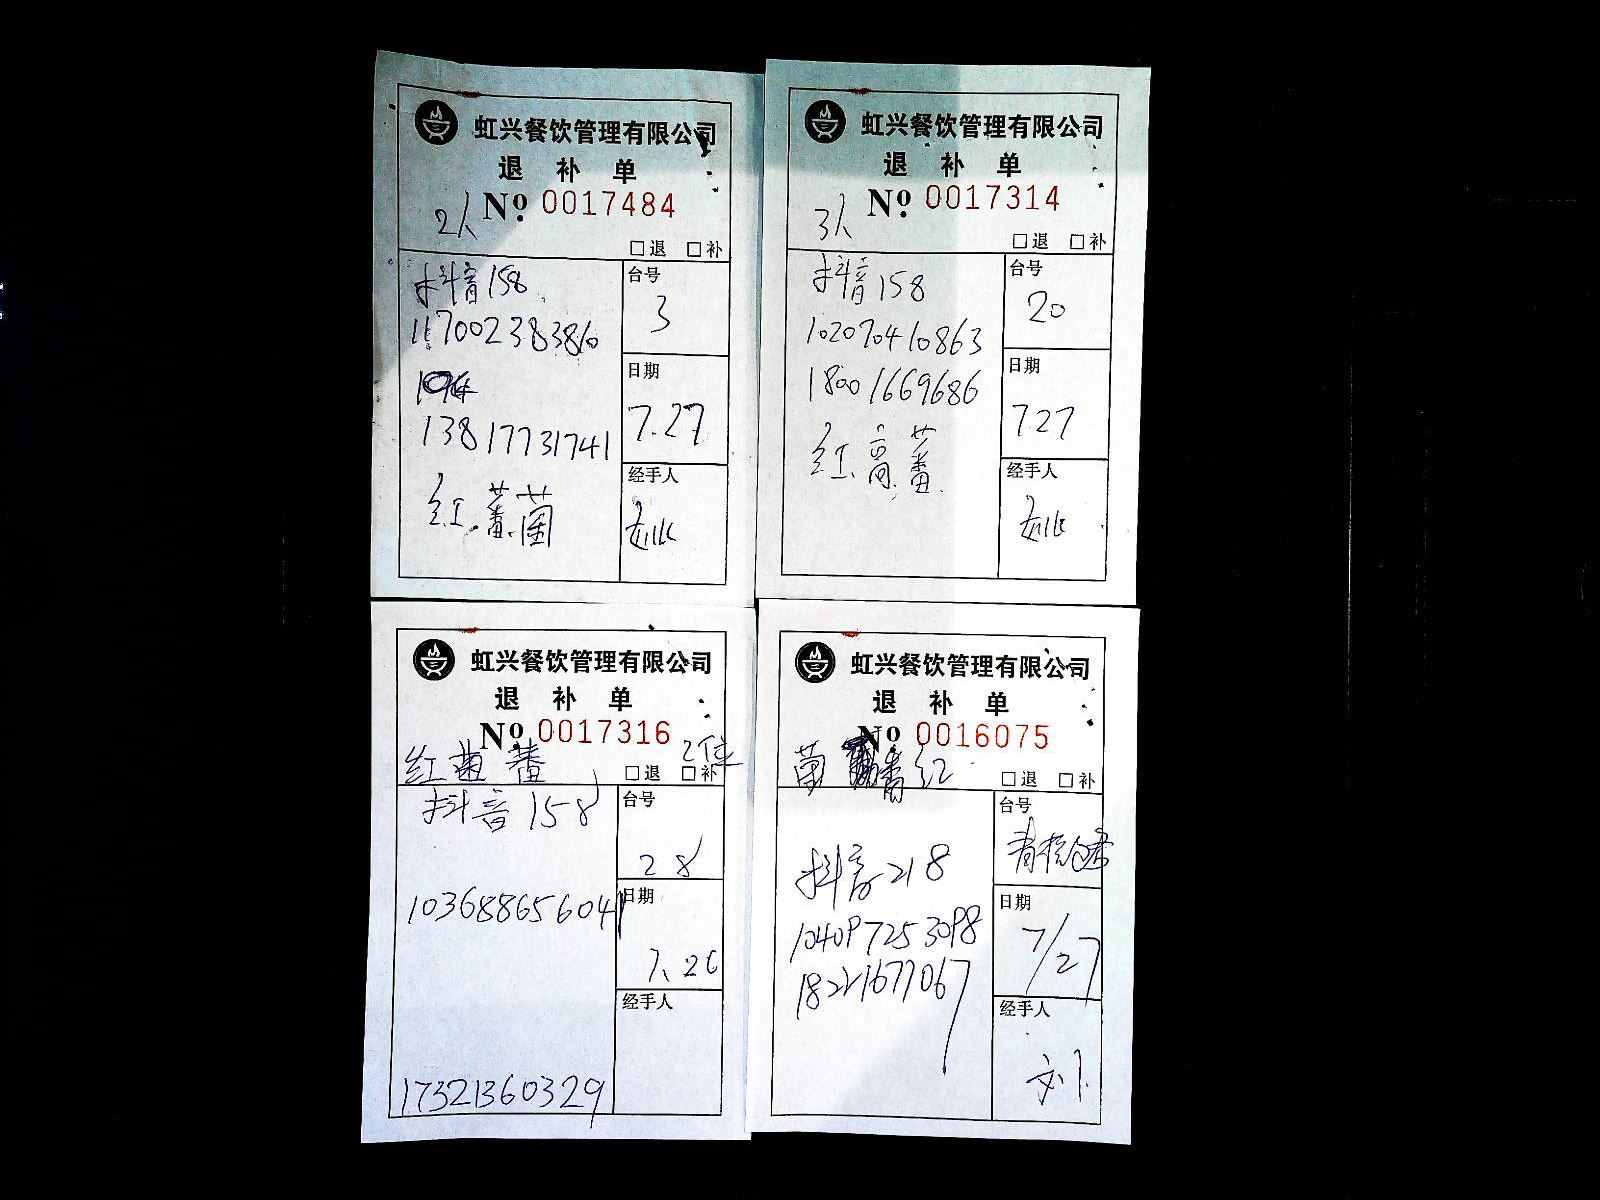 虹兴餐饮管理有限公司
退 补 单
2人 No. 0017484
□退 □补
抖音158
11700238386
13817731741
红 蕃 菌
台号
3
日期
7.27
经手人
虹兴餐饮管理有限公司
退 补 单
3人 No. 0017314
□退 □补
抖音158
102070410863
18001669686
红 蕃
台号
20
日期
7.27
经手人
虹兴餐饮管理有限公司
退 补 单
No. 0017316
红 菌 蕃 2位
□退 □补
抖音158
103688656041
17321360329
台号
28
日期
7.26
经手人
虹兴餐饮管理有限公司
退 补 单
No. 0016075
菌 红
□退 □补
抖音218
104097253098
18221677067
台号
日期
7/27
经手人
刘